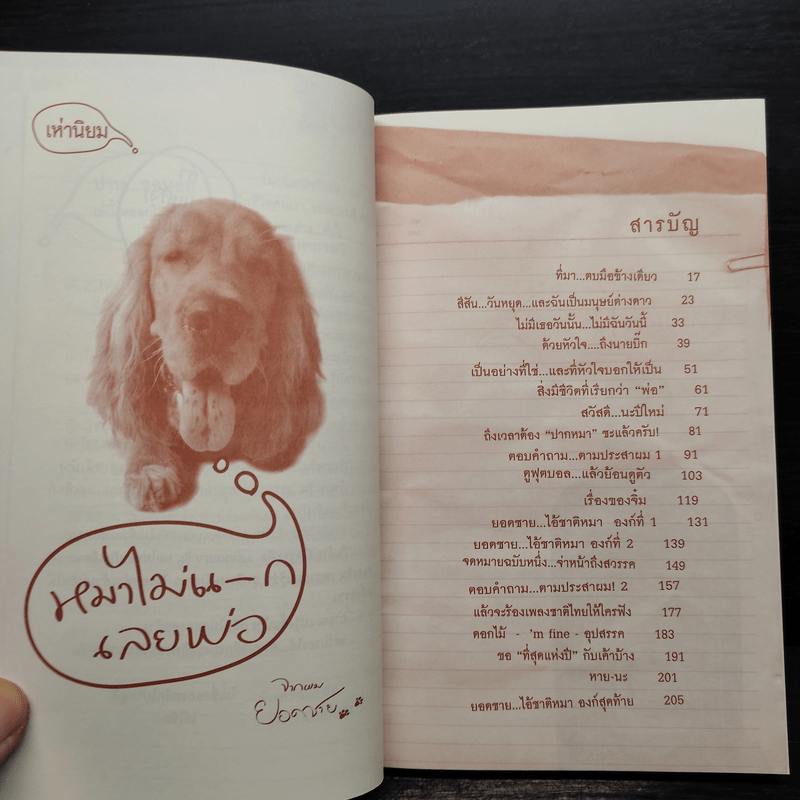 เห่านิยม
หมาไม่แ-ก
เลยพ่อ
จากผม
ยอดชาย
สารบัญ
ที่มา...ตบมือข้างเดียว 17
สีสัน...วันหยุด...และฉันเป็นมนุษย์ต่างดาว 23
ไม่มีเธอวันนั้น...ไม่มีฉันวันนี้ 33
ด้วยหัวใจ....ถึงนายบิ๊ก 39
เป็นอย่างที่ใช่...และที่หัวใจบอกให้เป็น 51
สิ่งมีชีวิตที่เรียกว่า “พ่อ” 61
สวัสดี...นะปีใหม่ 71
ถึงเวลาต้อง “ปากหมา” ซะแล้วครับ! 81
ตอบคำถาม...ตามประสาผม 1 91
ดูฟุตบอล...แล้วย้อนดูตัว 103
เรื่องของจิ๋ม 119
ยอดชาย...ไอ้ชาติหมา องก์ที่ 1 131
ยอดชาย...ไอ้ชาติหมา องก์ที่ 2 139
จดหมายฉบับหนึ่ง...จ่าหน้าถึงสวรรค์ 149
ตอบคำถาม...ตามประสาผม! 2 157
แล้วจะร้องเพลงชาติไทยให้ใครฟัง 177
ดอกไม้ - 'm fine - อุปสรรค 183
ขอ “ที่สุดแห่งปี” กับเค้าบ้าง 191
หาย-นะ 201
ยอดชาย...ไอ้ชาติหมา องก์สุดท้าย 205